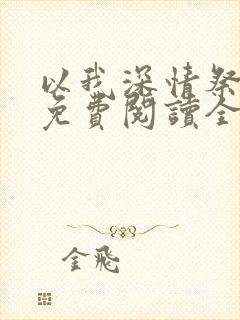 以我深情祭
免費閱讀全
金飛